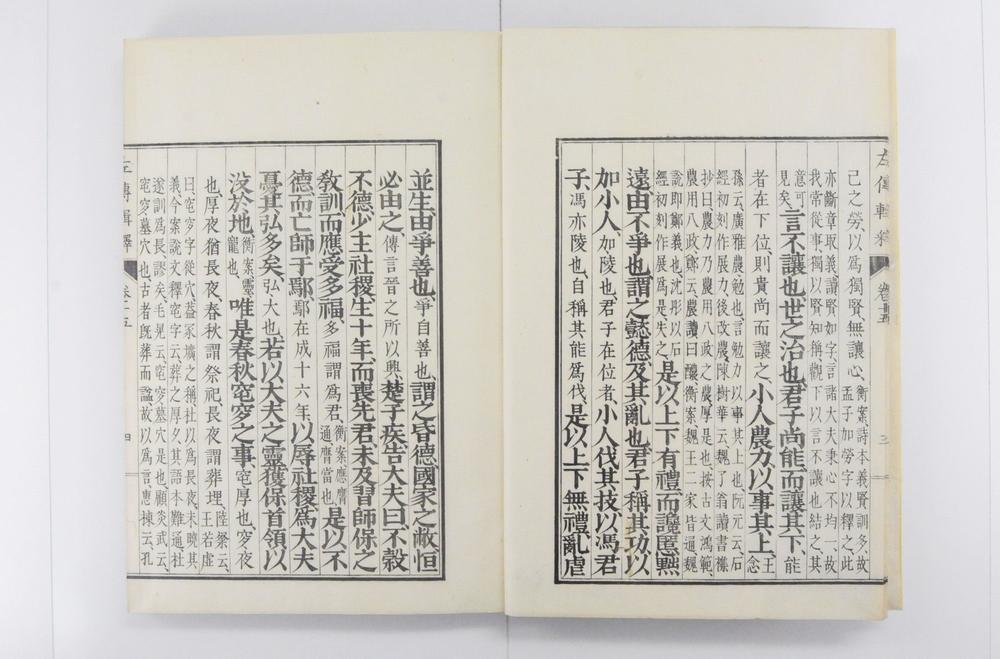 左傳輯釋 卷十五 三
己之勞、以爲獨賢、無讓心、衡案、詩本義賢訓多、故
孟子如勞字以釋之、此
亦斷章取義讀賢如字、言諸大夫秉心不均一、故
我常從事、獨以賢知稱、觀下以言不讓也結之、其
意可見矣、言不讓也、世之治也、君子尚能、而讓其下、能
者在下位、則貴尚而讓之、小人農力以事其上、王念
孫云、廣雅、農、勉也、言勉力以事其上也、阮元云、石
經初刻作展力、後改農、陳樹華云、魏了翁讀書襍
抄曰、農力乃農用八政之農、厚是也、按古文鴻範
農用八政、鄭云、農讀曰醲、衡案、魏王二家皆通、魏
說即鄭義也、沈彤以石
經初刻作展爲是、失之、是以上下有禮、而讒慝黜
遠、由不爭也、謂之懿德、及其亂也、君子稱其功、以
加小人、加陵也、君子在位者、小人伐其技、以馮君
子、馮亦陵也、自稱其能爲伐、是以上下無禮、亂虐
並生、由爭善也、爭自善也、謂之昏德、國家之敝、恒
必由之、傳言晉之所以興、楚子疾、告大夫曰、不穀
不德、少主社稷、生十年、而喪先君、未及習師保之
敎訓、而應受多福、多福謂爲君、衡案、應膺
通、膺當也、是以不
德、而亡師于鄢、鄢在成十六年、以辱社稷、爲大夫
憂、其弘多矣、弘大也、若以大夫之靈、獲保首領、以
沒於地、衡案、靈
寵也、唯是春秋窀穸之事、窀厚也、穸夜
也、厚夜猶長夜、春秋謂祭祀、長夜謂葬埋、陸粲云、
王若虛
曰、窀穸字從穴、葢冢壙之稱、杜以爲長夜、未曉其
義、今案、說文釋窀字云、葬之厚夕、其語本難通、杜
遂訓爲長、謬矣、毛晃云、窀穸、墓穴是也、顧炎武云、
窀穸墓穴也、古者旣葬而謚、故以爲言、惠棟云、孔
左傳輯釋 卷十五 四